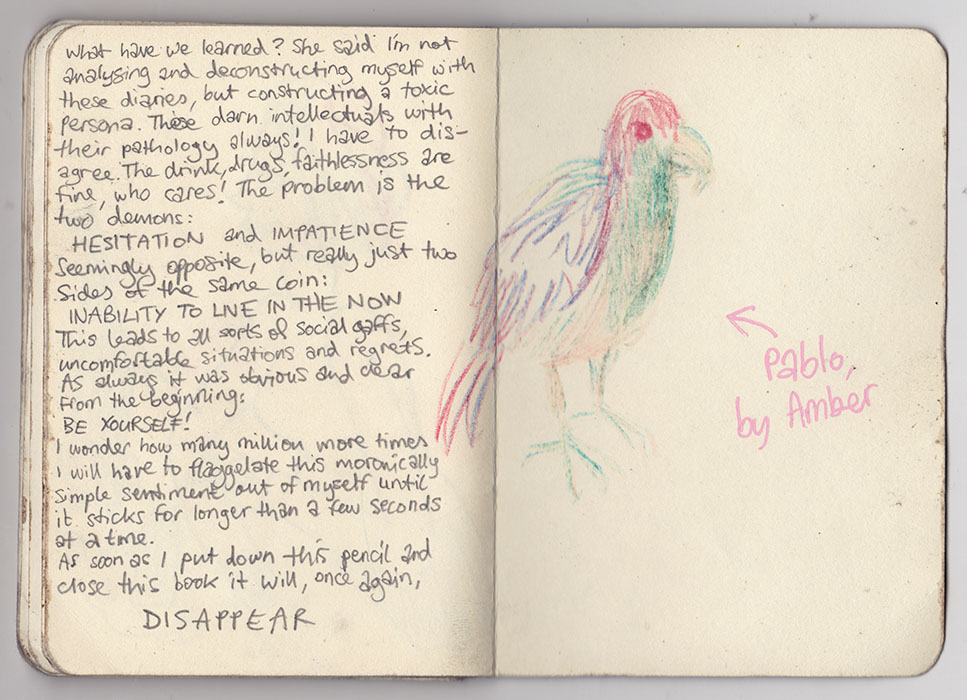 What have we learned? She said I'm not
analysing and deconstructing myself with
these diaries, but constructing a toxic
persona. These darn intellectuals with
their pathology always! I have to dis-
agree. The drink, drugs, faithlessness are
fine, who cares! The problem is the
two demons:
HESITATION and IMPATIENCE
Seemingly opposite, but really just two
sides of the same coin:
INABILITY TO LIVE IN THE NOW
This leads to all sorts of social gaffs,
uncomfortable situations and regrets.
As always it was obvious and clear
from the beginning:
BE YOURSELF!
I wonder how many million more times
I will have to flaggelate this moronically
simple sentiment out of myself until
it sticks for longer than a few seconds
at a time.
As soon as I put down this pencil and
close this book it will, once again,
DISAPPEAR
Pablo,
by Amber